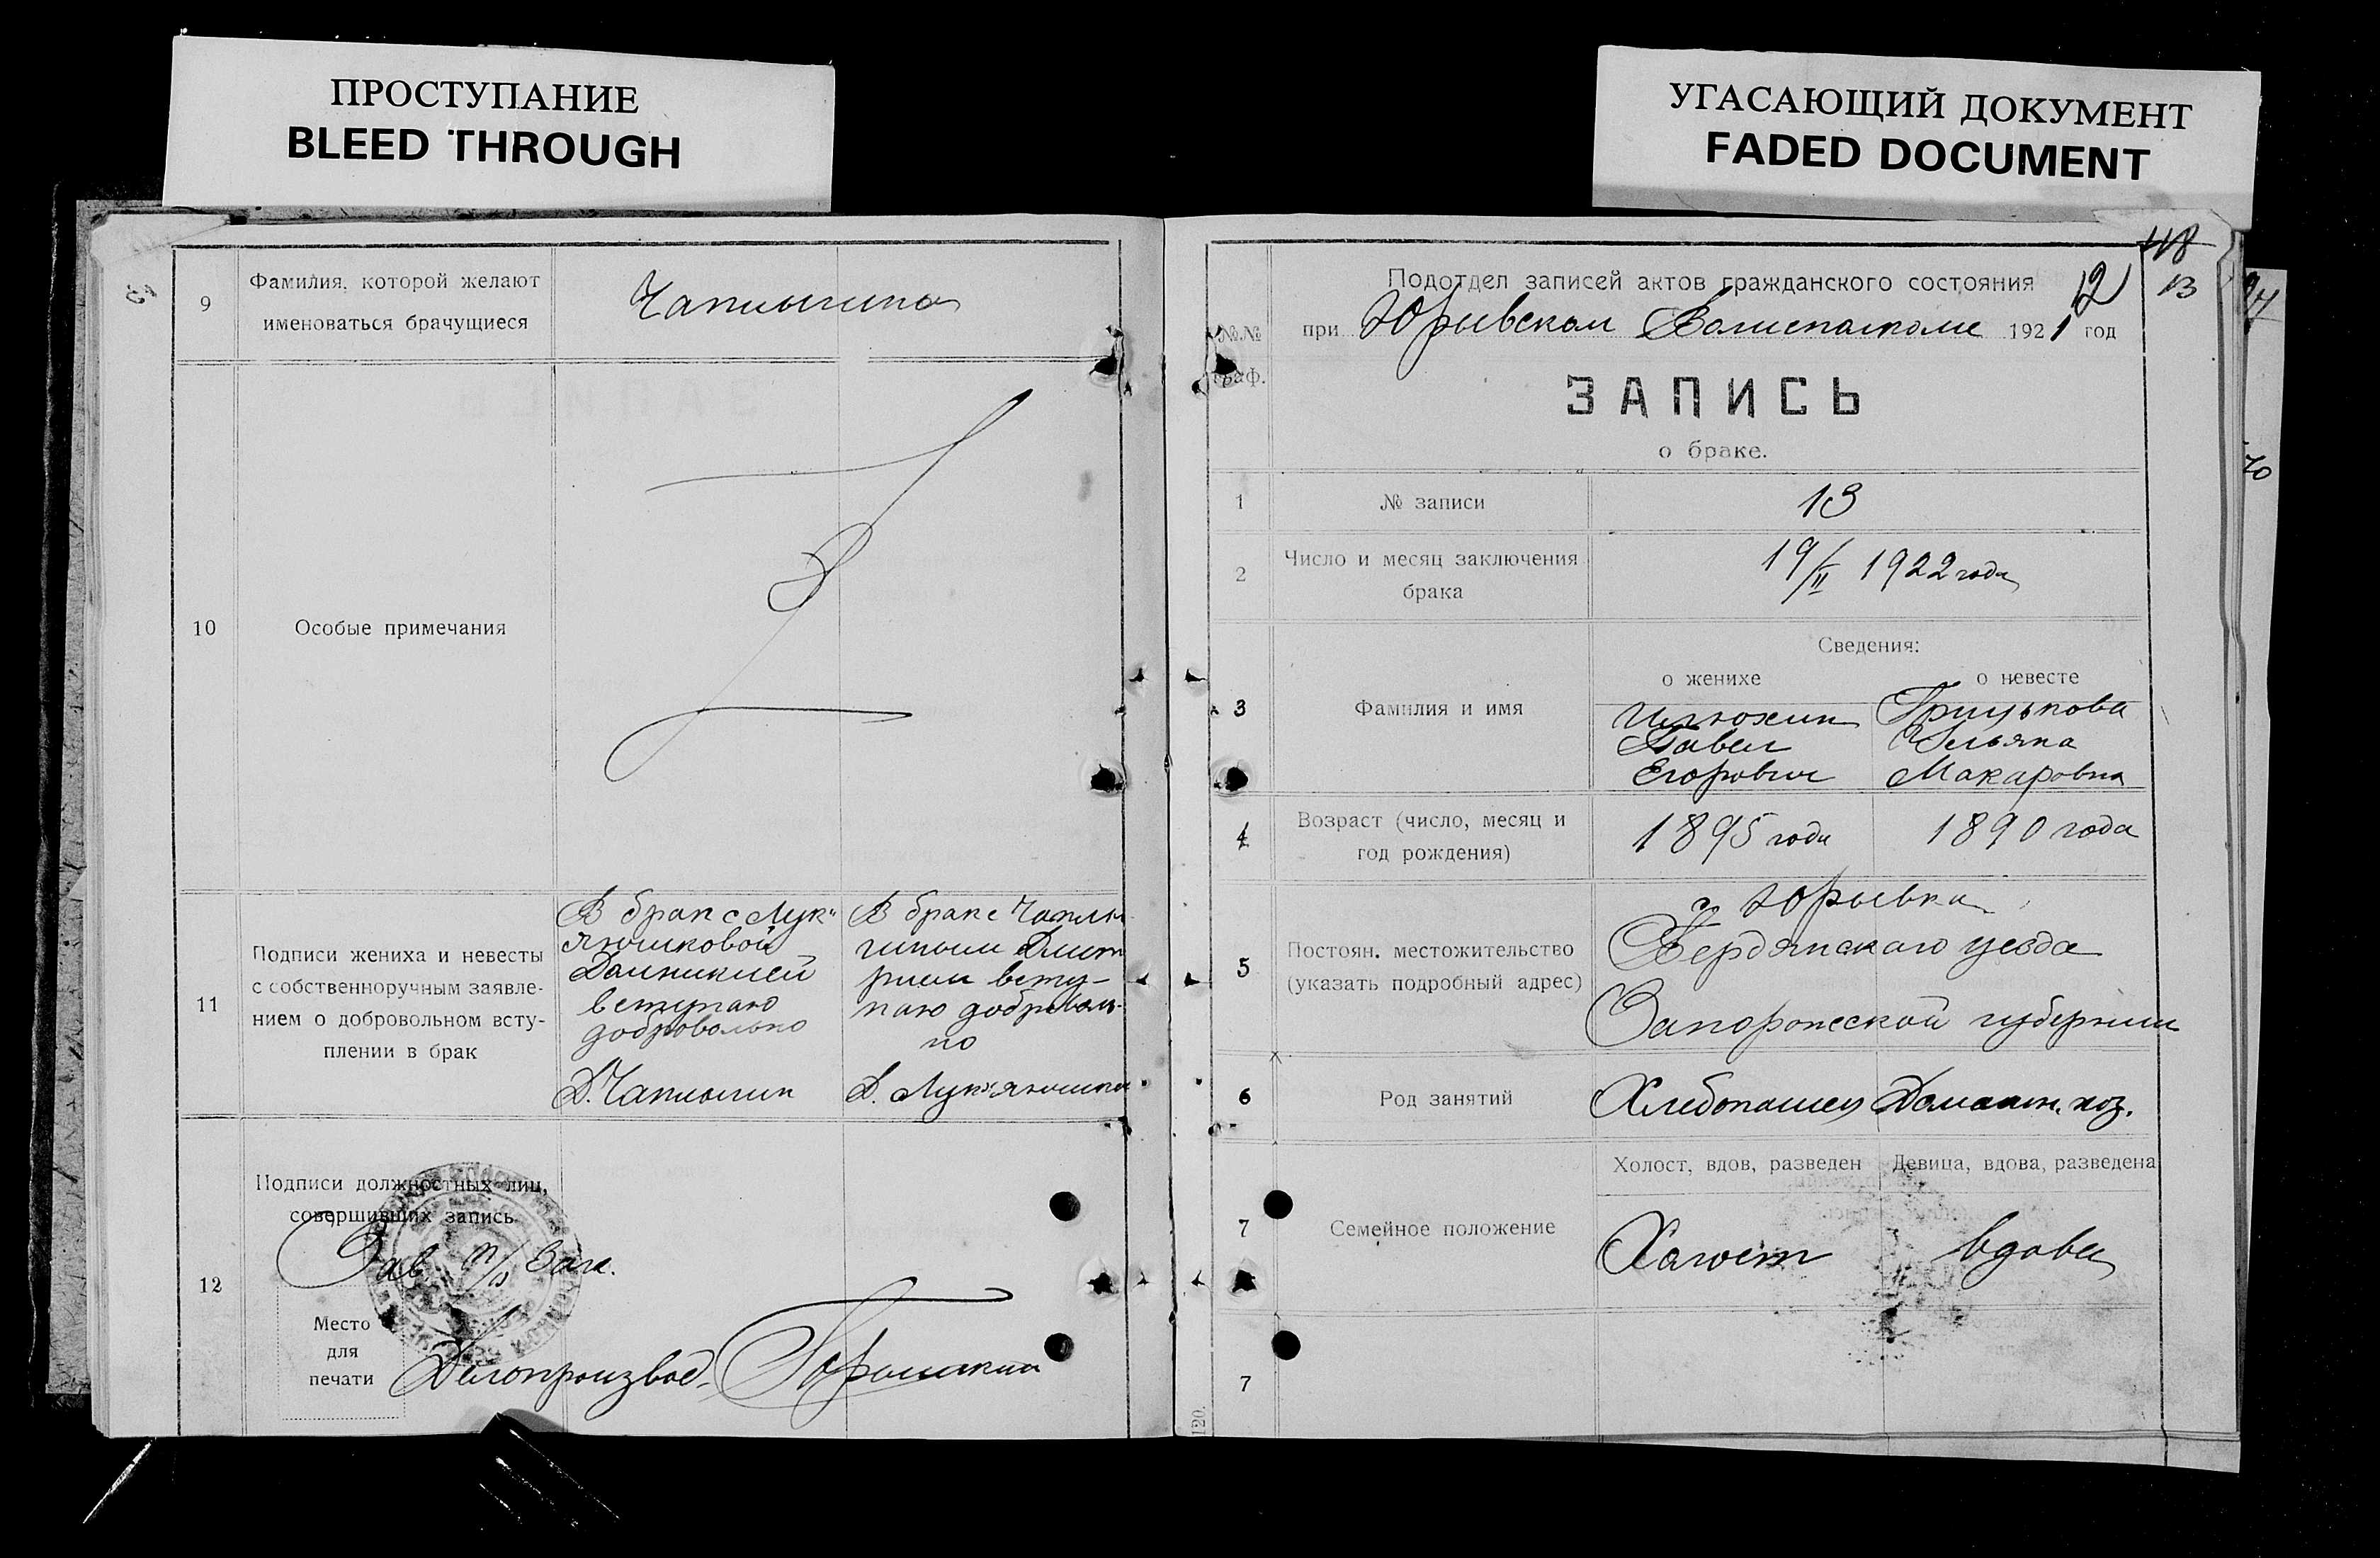 ПРОСТУПАНИЕ
BLEED THROUGH
УГАСАЮЩИЙ ДОКУМЕНТ
FADED DOCUMENT
9
Фамилия, которой желают
именоваться брачущиеся
Чаплыгина
10
Особые примечания
11
Подписи жениха и невесты
с собственноручным заявле-
нием о добровольном всту-
плении в брак
В брак с Лукъ
янюшковой
Домникией
вступаю
добровольно
Д. Чаплыгин
В брак с Чаплы
гиным Дмит
рием всту-
паю доброволь-
но
Д. Лукъянюшко
12
Подписи должностных лиц,
совершивших запись
Зав п/о Загс.
Место
для
печати
Делопроизвод.
118
12
13
№№
граф.
Подотдел записей актов гражданского состояния
при Юрьевском Волисполкоме 1921 год
ЗАПИСЬ
о браке.
1
№ записи
13
2
Число и месяц заключения
брака
19/II 1922 года
Сведения:
о женихе
о невесте
3
Фамилия и имя
Илюхин
Павел
Егорович
Ульяна
Макаровна
4
Возраст (число, месяц и
год рождения)
1895 года
1890 года
5
Постоян. местожительство
(указать подробный адрес)
с Юрьевка
Бердянского уезда
Запорожской губернии
6
Род занятий
Хлебопашец
Домашн. хоз.
7
Семейное положение
Холост, вдов, разведен
Девица, вдова, разведена
Холост
вдова
7
120.